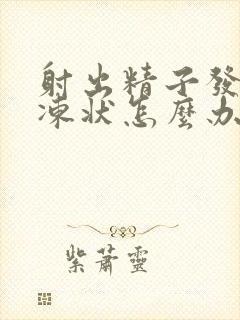 射出精子發
凍狀怎麼办
紫蕭靈